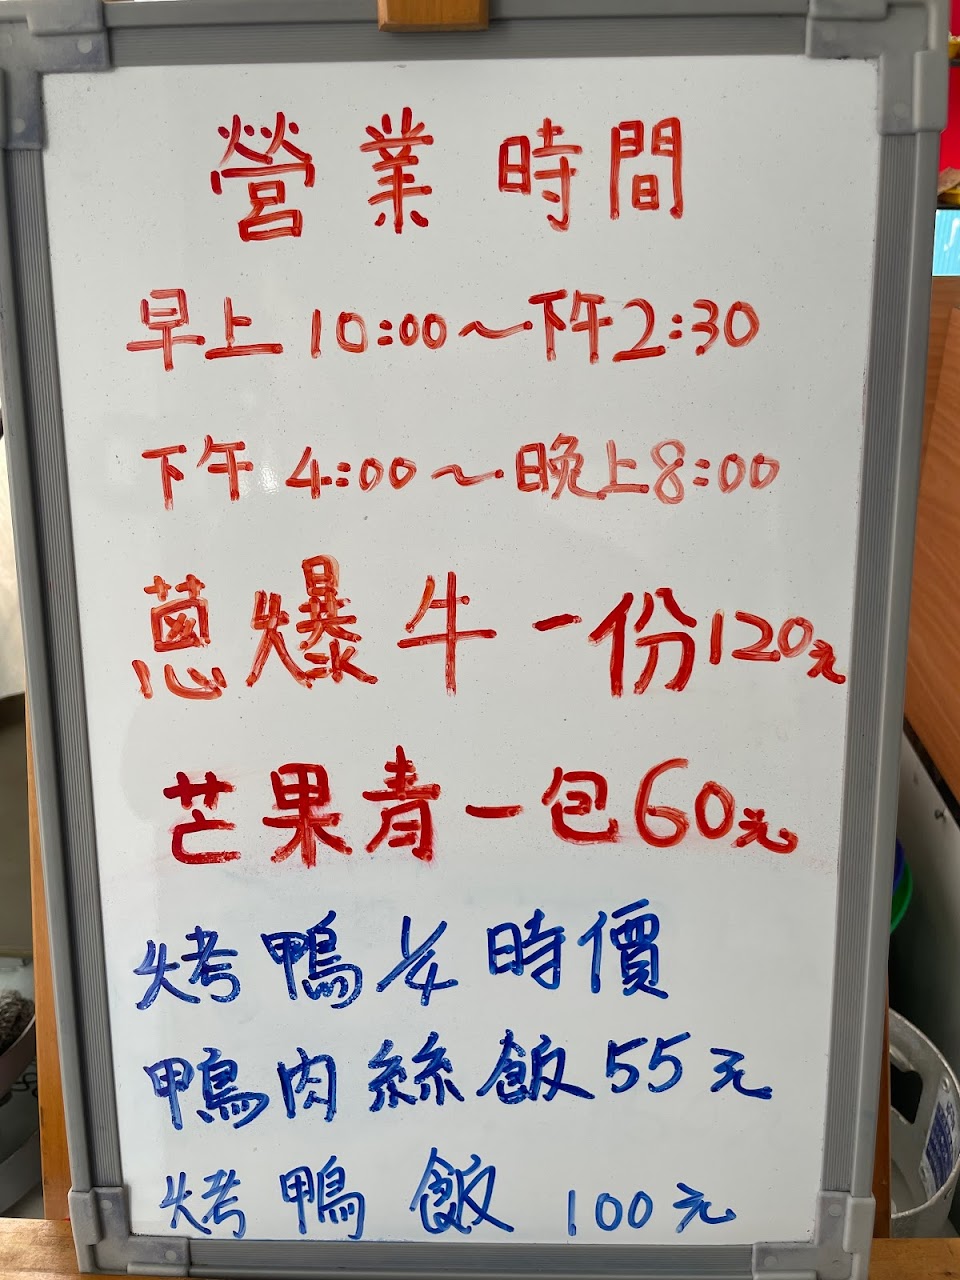 營業時間
早上10:00～下午2:30
下午4:00～晚上8:00
蔥爆牛一份120元
芒果青一包60元
烤鴨1/4時價
鴨肉絲飯55元
烤鴨飯100元